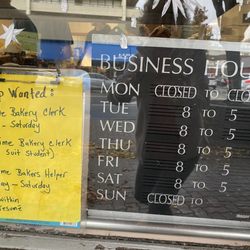 p Wanted:
me Bakery Clerk
- Saturday
me Bakery Clerk
suit student)
me Bakers Helper
ay - Saturday
within
BUSINESS HOU
MON CLOSED TO CLO
TUE 8 TO 5
WED 8 TO 5
THU 8 TO 5
FRI 8 TO 5
SAT 8 TO 5
SUN CLOSED TO